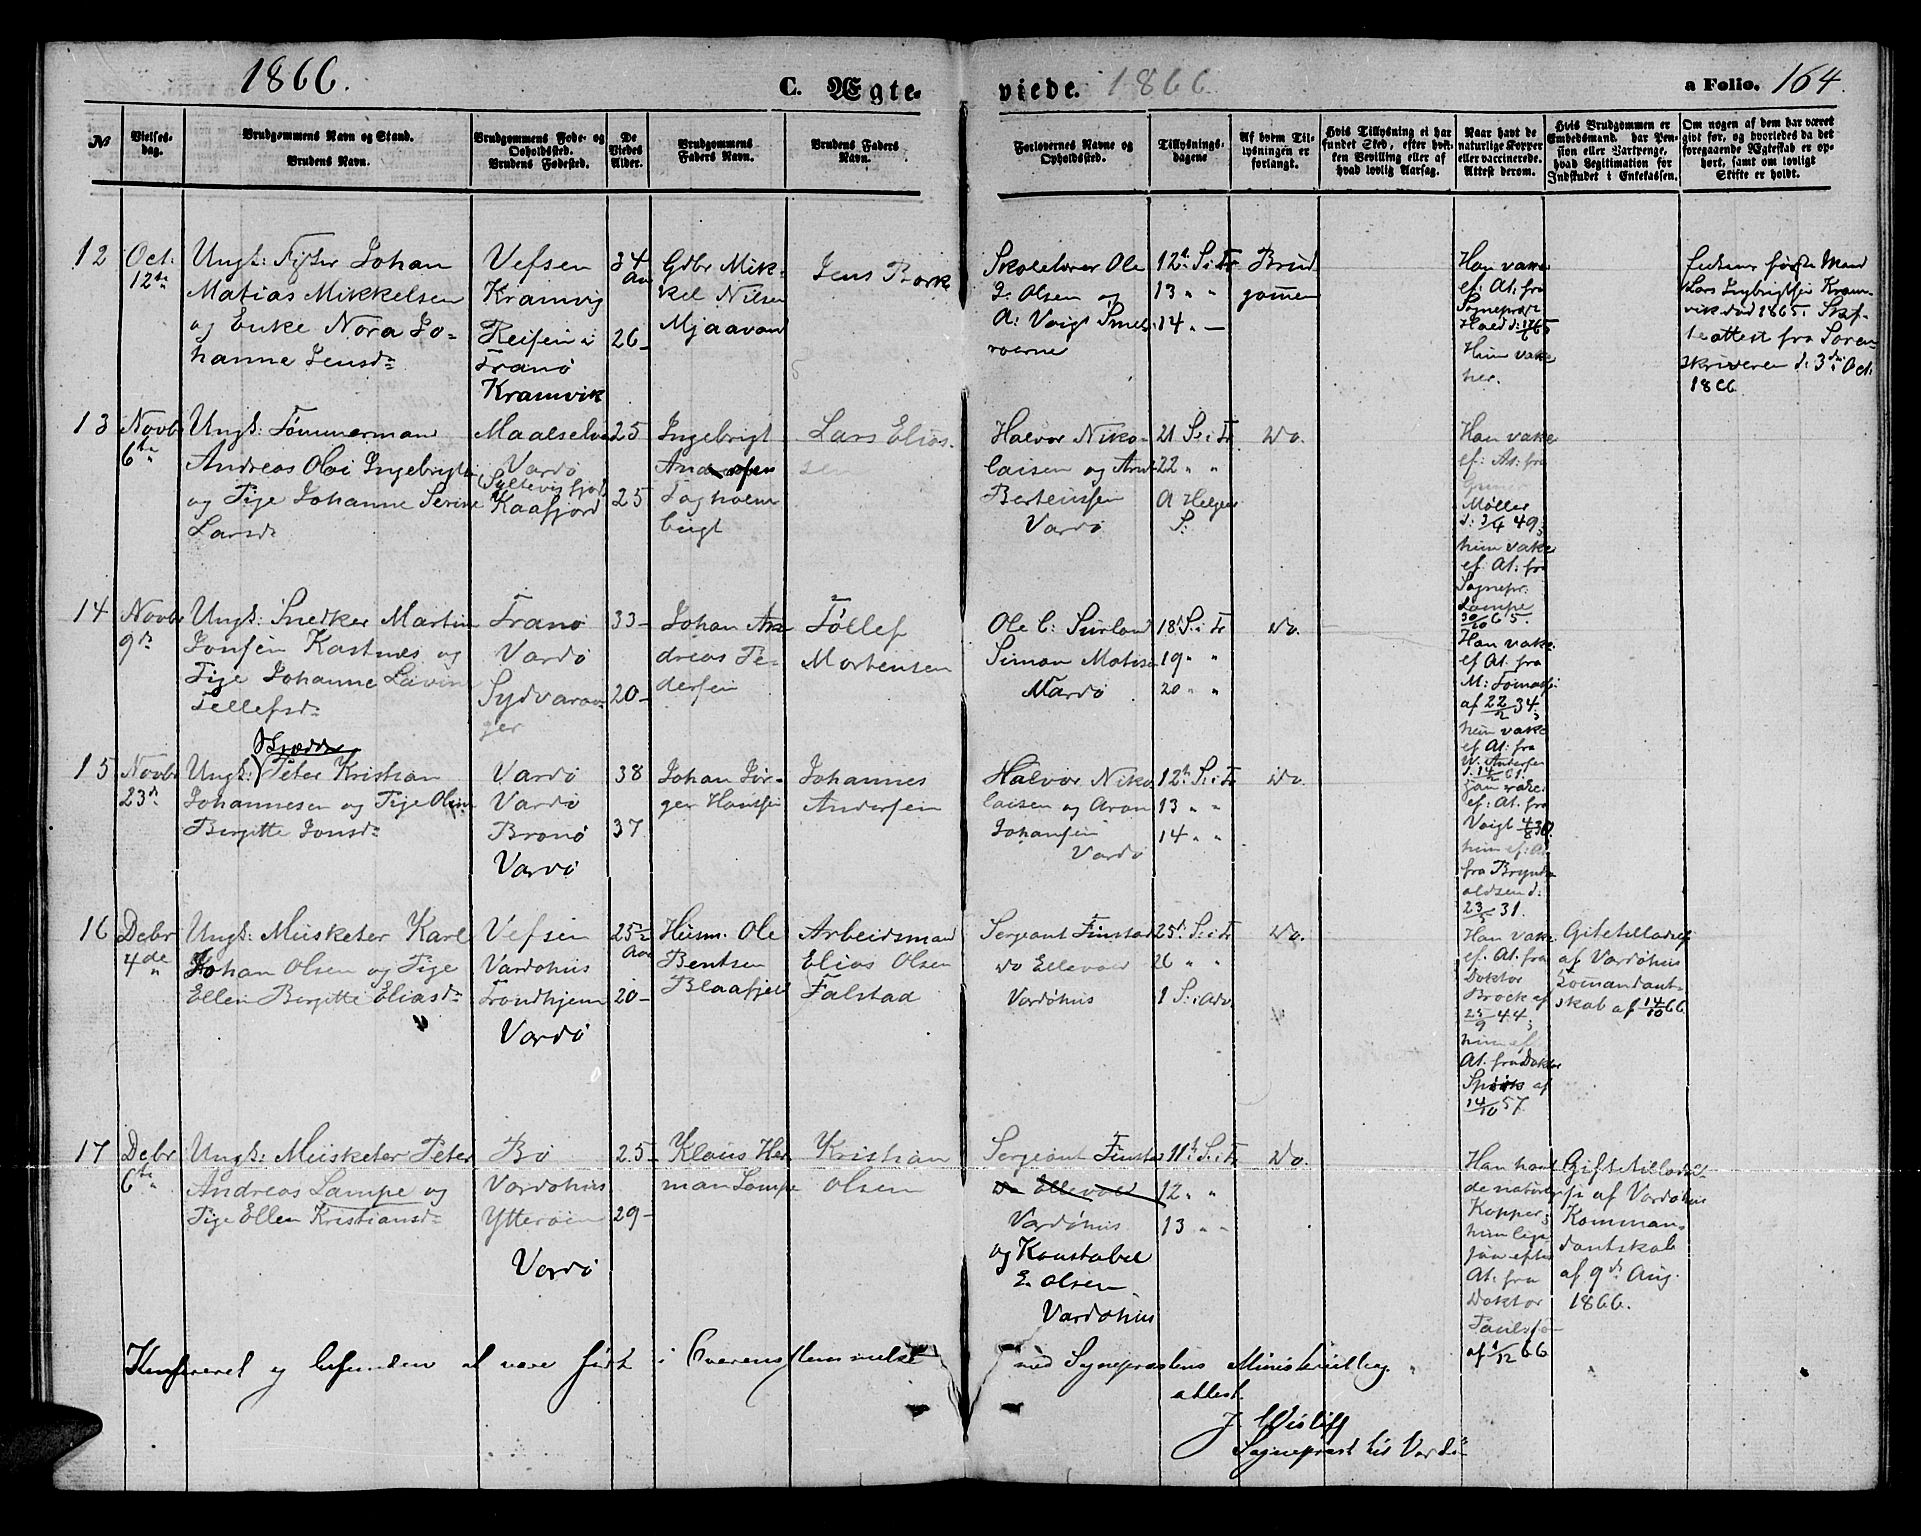 1866.
C. Ægte-
viede.
1866
a Folio.
164.
№
Vielses-
dag.
Brudgommens Navn og Stand.
Brudens Navn.
Brudgommens Føde- og
Opholdssted.
Brudens Fødested.
De
Viedes
Alder.
Brudgommens
Faders Navn.
Brudens Faders
Navn.
Forlovernes Navne og
Opholdssted.
Tillysnings-
dagene
Af hvem Til-
lysningen er
forlangt.
Hvis Tillysning ei har
fundet Sted, efter hvil-
ken Bevilling eller af
hvad lovlig Aarsag.
Naar havt de
naturlige Kopper
eller vaccinerede.
Attest derom.
Hvis Brudgommen er
Embedsmand, har Pen-
sion eller Vartpenge,
hvad Legitimation for
Indskudet i Enkekassen.
Om nogen af dem har været
gift før, og hvorledes da det
foregaaende Ægteskab er op-
hørt, samt om lovligt
Skifte er holdt.
12
Oct.
12te
Ungk: Fisker Johan
Matias Mikkelsen
og Enke Nora Jo-
hanne Jensd:
Vefsen
Kramvig
Reisen i
Tranö
Kramvik
34
Aar
26-
Gdbr Mik-
kel Nilsen
Mjaavand
Jens Bork
Skolelærer Ole
J. Olsen og
A: Voigt Smels-
roerne
12te S. i Tr
13 " "
14 " -
Brud
gomen
Han vakc
ef. At. fra
Sognepræst
Hald d: 17/6 65
Hun vakc
her.
hendes første Mand
Lars Ingbrigtsen Kram-
vik død 1865. Skif-
teattest fra Soren-
skriveren d. 3die Oct.
1866
13
Novbr
6te
Ungk: Tømmermand
Andreas Olai Ingebrigts
og Pige Johanne Serine
Larsd:
Maalselven
Vardö
(Syltevigfjord)
Kaafjord
25
25
Ingebrigt
Andersen
Fagholm
bugt
Lars Elias-
sen
Halvor Niko-
laisen og Arnt
Bertensen
Vardö
21 S. i Tr
22 " "
A Helgen
S:
do.
Han vakc
ef: At: fra
Møller
d: 3/4 49,
hun vakc
ef. At: fra
Sognepr:
Lampe
30/10 65.
14
Novbr
9de
Ungk: Snedker Martin
Jonsen Kastnes og
Pige Johanne Lavine
Tellefsd:
Tranö
Vardö
Sydvaran-
ger
33-
20-
Johan An
dreas Pe-
dersen
Tøllef
Mortensen
Ole C: Surland
Simon Matisen
Vardö
18de S. i Tr
19 " "
20 " "
do.
Han vakc.
ef At. fra
M: Tomassen
af 22/2 34.
hun vakc
ef At: fra
W. Andersen
d. 14/2 61.
15
Novbr
23de
Ungk: Peter Kristian
Johannesen og Pige Oline
Bergitte Jonsd:
Vardö
Vardö
Bronö
Vardö
38
37
Johan Jör-
ger Hansen
Johannes
Andersen
Halvor Niko
laisen og Aron
Johansen
Vardö
12te S. i Tr
13 " "
14 " "
do.
han vakc.
ef: At. fra
Voigt 4/8 30.
hun ef: At
fra Brynd
aldsen d:
23/5 31.
16
Debr
4de
Ungk: Musketer Karl
Johan Olsen og Pige
Ellen Bergitte Eliasd:
Vefsen
Vardöhus
Trondhjem
Vardö
25½
Aar
20-
Husm. Ole
Bentsen
Blaafjeld
Arbeidsmand
Elias Olsen
Falstad
Sergeant Finstad
do Ellevold
Vardöhus
25de S. i Tr
26 " "
1 S. i Adv
do.
Han vakc
ef. At. fra
Doktor
Brock af
25/9 44,
hun ef
At. fra Doktor
Spörk af
14/10 57.
Giftetilladse
af Vardöhus
Komandant-
skab af 14/10 66
17
Debr
6te
Ungk: Musketer Peter
Andreas Lampe og
Pige Ellen Kristiansd:
Bö
Vardöhus
Ytteröen
Vardö
25-
29-
Klaus Her
man Lampe
Kristian
Olsen
Sergeant Finstad
do Ellevold
Vardöhus
og Konstabel
E. Olsen
Vardöhus
11te S. i Tr
12 " "
13 " "
do.
Han havt
de naturlige
Kopper,
hun lige-
saa efter
At. fra
Doktor
af 1/12 66
Giftetilladel-
se af Vardöhus
Komman-
dantskab
af 9de Aug.
1866.
Konfereret og befunden at være ført i Overensstemmelse
med Sognepræstens Ministerialbog
attest.
J. Wisløff
Sognepræst til Vardø